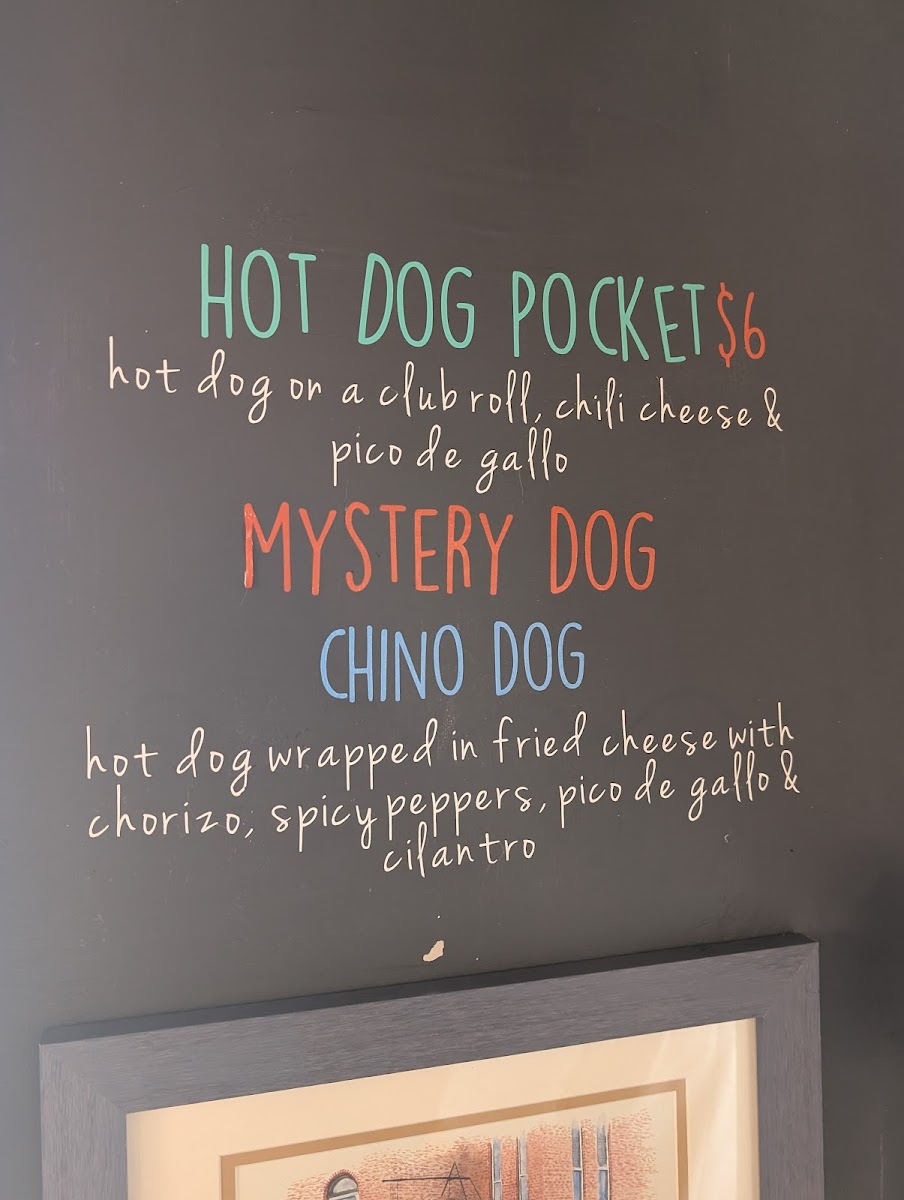 HOT DOG POCKET $6
hot dog on a club roll, chili cheese &
pico de gallo
MYSTERY DOG
CHINO DOG
hot dog wrapped in fried cheese with
chorizo, spicy peppers, pico de gallo &
cilantro